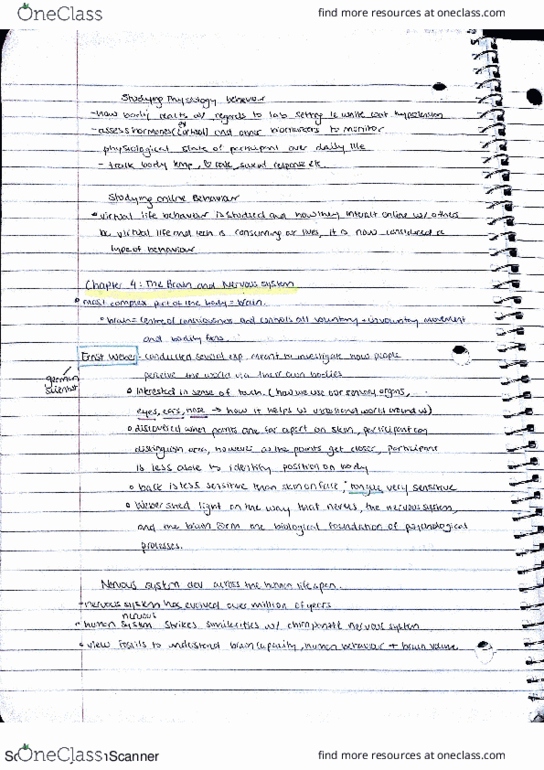 OneClass
find more resources at oneclass.com
Studying Physiology behaviour
- how body reacts w/ regards to lab setting ie white coat hypertension
- assess hormones (cortisol) and other biomarkers to monitor
physiological state of participant over daily life
- track body temp, rate, response etc.
Studying online Behaviour
virtual life behaviour is studied and how they interact online w/ others
bc virtual life and tech is consuming our lives, it is now considered a
type of behaviour
Chapter 4: The Brain and Nervous system
most complex part of the body = brain.
brain = centre of consciousness and controls all voluntary + involuntary movement
and bodily fxns.
Ernst Weber - conducted several exp. meant to investigate how people
german
scientist
perceive the world via their own bodies
Interested in sense of touch. (how we use our sensory organs,
eyes, ears, nose → how it helps us understand world around us)
discovered when points are far apart on skin, participant can
distinguish area, however as the points get closer, participant
is less able to identify position on body
back is less sensitive than skin on face; tongue very sensitive
Weber shed light on the way that nerves, the nervous system,
and the brain form the biological foundation of psychological
processes.
Nervous system dev across the human lifespan.
- nervous system has evolved over million of years
human nervous system strikes similarities w/ chimpanzee nervous system
view fossils to understand brain capacity, human behaviour + brain volume
OneClass
Scanner
find more resources at oneclass.com